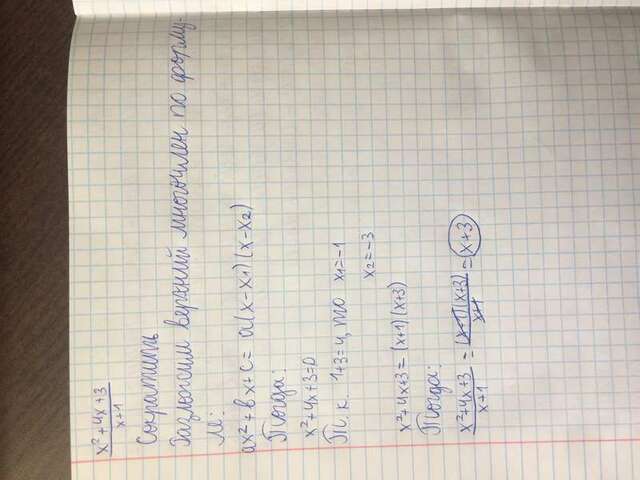 x²+4x+3
x+1
Сократить
Разложим верхний многочлен по форму-
ле:
ax²+bx+c= a(x-x₁)(x-x₂)
Тогда:
x²+4x+3=0
Т.к. 1+3=4, то x₁=-1
x₂=-3
x²+4x+3=(x+1)(x+3)
Тогда:
x²+4x+3 = (x+1)(x+3) = x+3
x+1 x+1